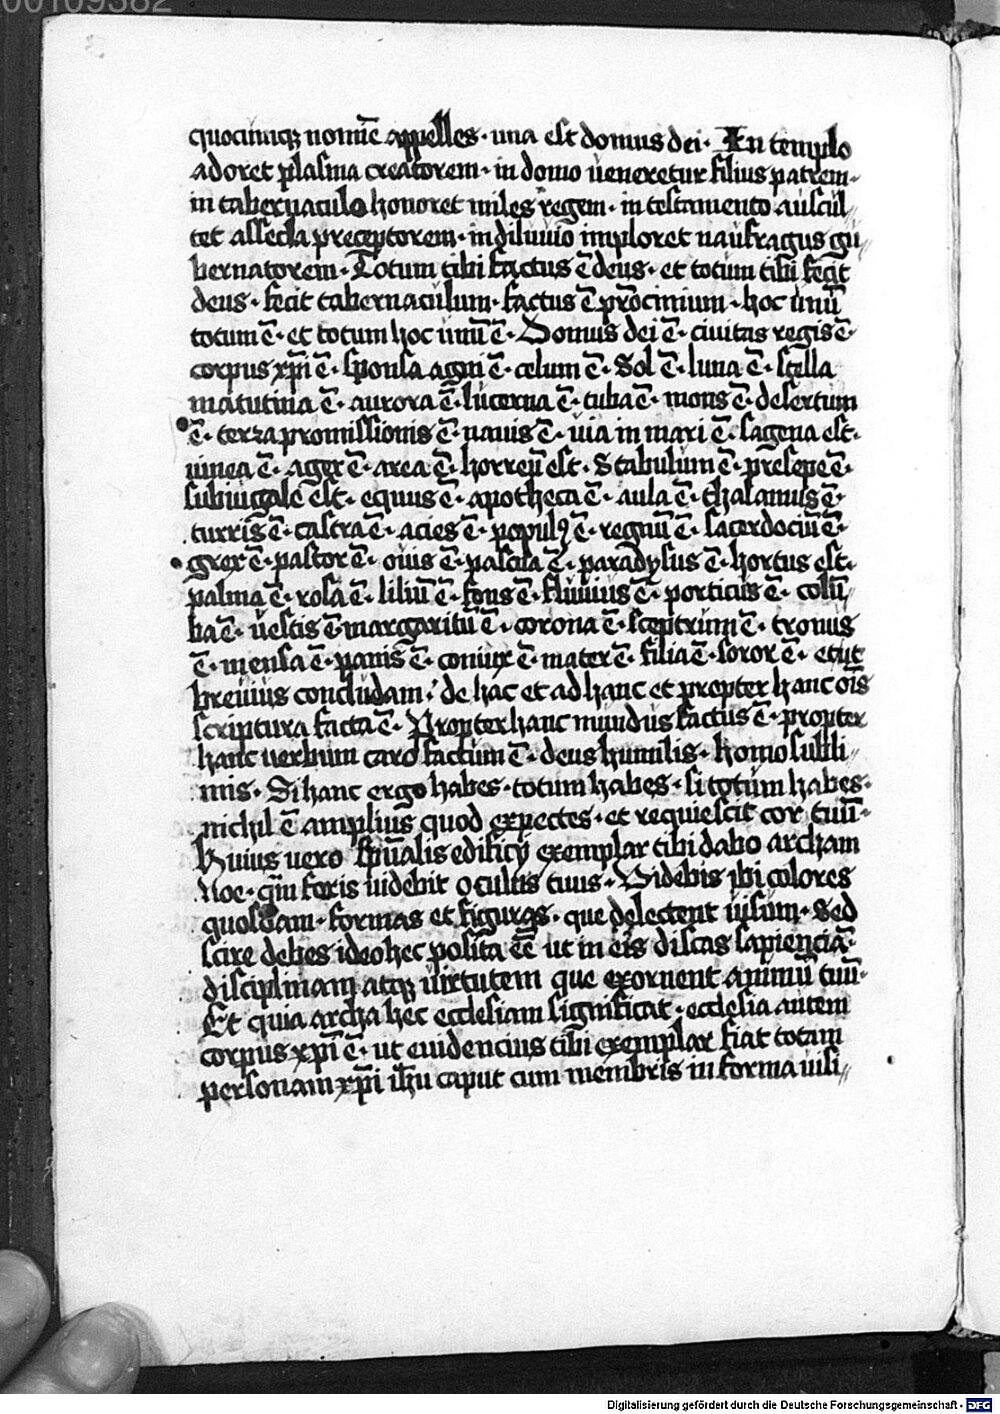 00109382
quocumqꝫ nomīe appelles · una est domus dei · In templo
adoret plasma creatorem · in domo ueneretur filius patrem ·
in tabernaculo honoret miles regem · in testamento auscul//
tet assecla preceptorem · in diluuio imploret naufragus gu//
bernatorem · Totum tibi factus ē deus · et totum tibi fecit
deus · fecit tabernaculum · factus ē p̄rocinium · hoc unū
totum ē · et totum hoc unū ē · Domus dei ē · ciuitas regis ē ·
corpus xp̄i ē · sponsa agni ē · celum ē · Sol ē · luna ē · stella
matutina ē · aurora ē · lucerna ē · tuba ē · mons ē · desertum
ē · terra promissionis ē · nauis ē · uia in mari ē · sagena est ·
uinea ē · ager ē · area ē · horreū est · Stabulum ē · presepe ē ·
subiugale est · equus ē · apotheca ē · aula ē · thalamus ē ·
turris ē · castra ē · acies ē · populꝰ ē · regnū ē · sacerdociū ē ·
grex ē · pastor ē · ouis ē · pascua ē · paradysus ē · hortus est ·
palma ē · rosa ē · liliū ē · fons ē · fluuius ē · porticus ē · colū//
ba ē · uestis ē · margaritū ē · corona ē · sceptrum ē · tronus
ē · mensa ē · panis ē · coniux ē · mater ē · filia ē · soror ē · et ut
breuius concludam · de hac et ad hanc et propter hanc oīs
scriptura facta ē · Propter hanc mundus factus ē · propter
hanc uerbum caro factum ē · deus humilis · homo subli//
mis · Si hanc ergo habes · totum habes · si totum habes ·
nichil ē amplius quod expectes · et requiescit cor tuū ·
Huius uero sp̄ualis edificij exemplar tibi dabo archam
Noe · qm̄ foris uidebit oculus tuus · Videbis ibi colores
quosdam · formas et figuras · que delectent uisum · Sed
scire debes ideo hec posita eē ut in eis discas sapienciā ·
disciplinam atqꝫ uirtutem que exornent animū tuū ·
Et quia archa hec ecclesiam significat · ecclesia autem
corpus xp̄i ē · ut euidencius tibi exemplar fiat totam
personam xp̄i ih̄u caput cum membris in forma uisi//
Digitalisierung gefördert durch die Deutsche Forschungsgemeinschaft - DFG